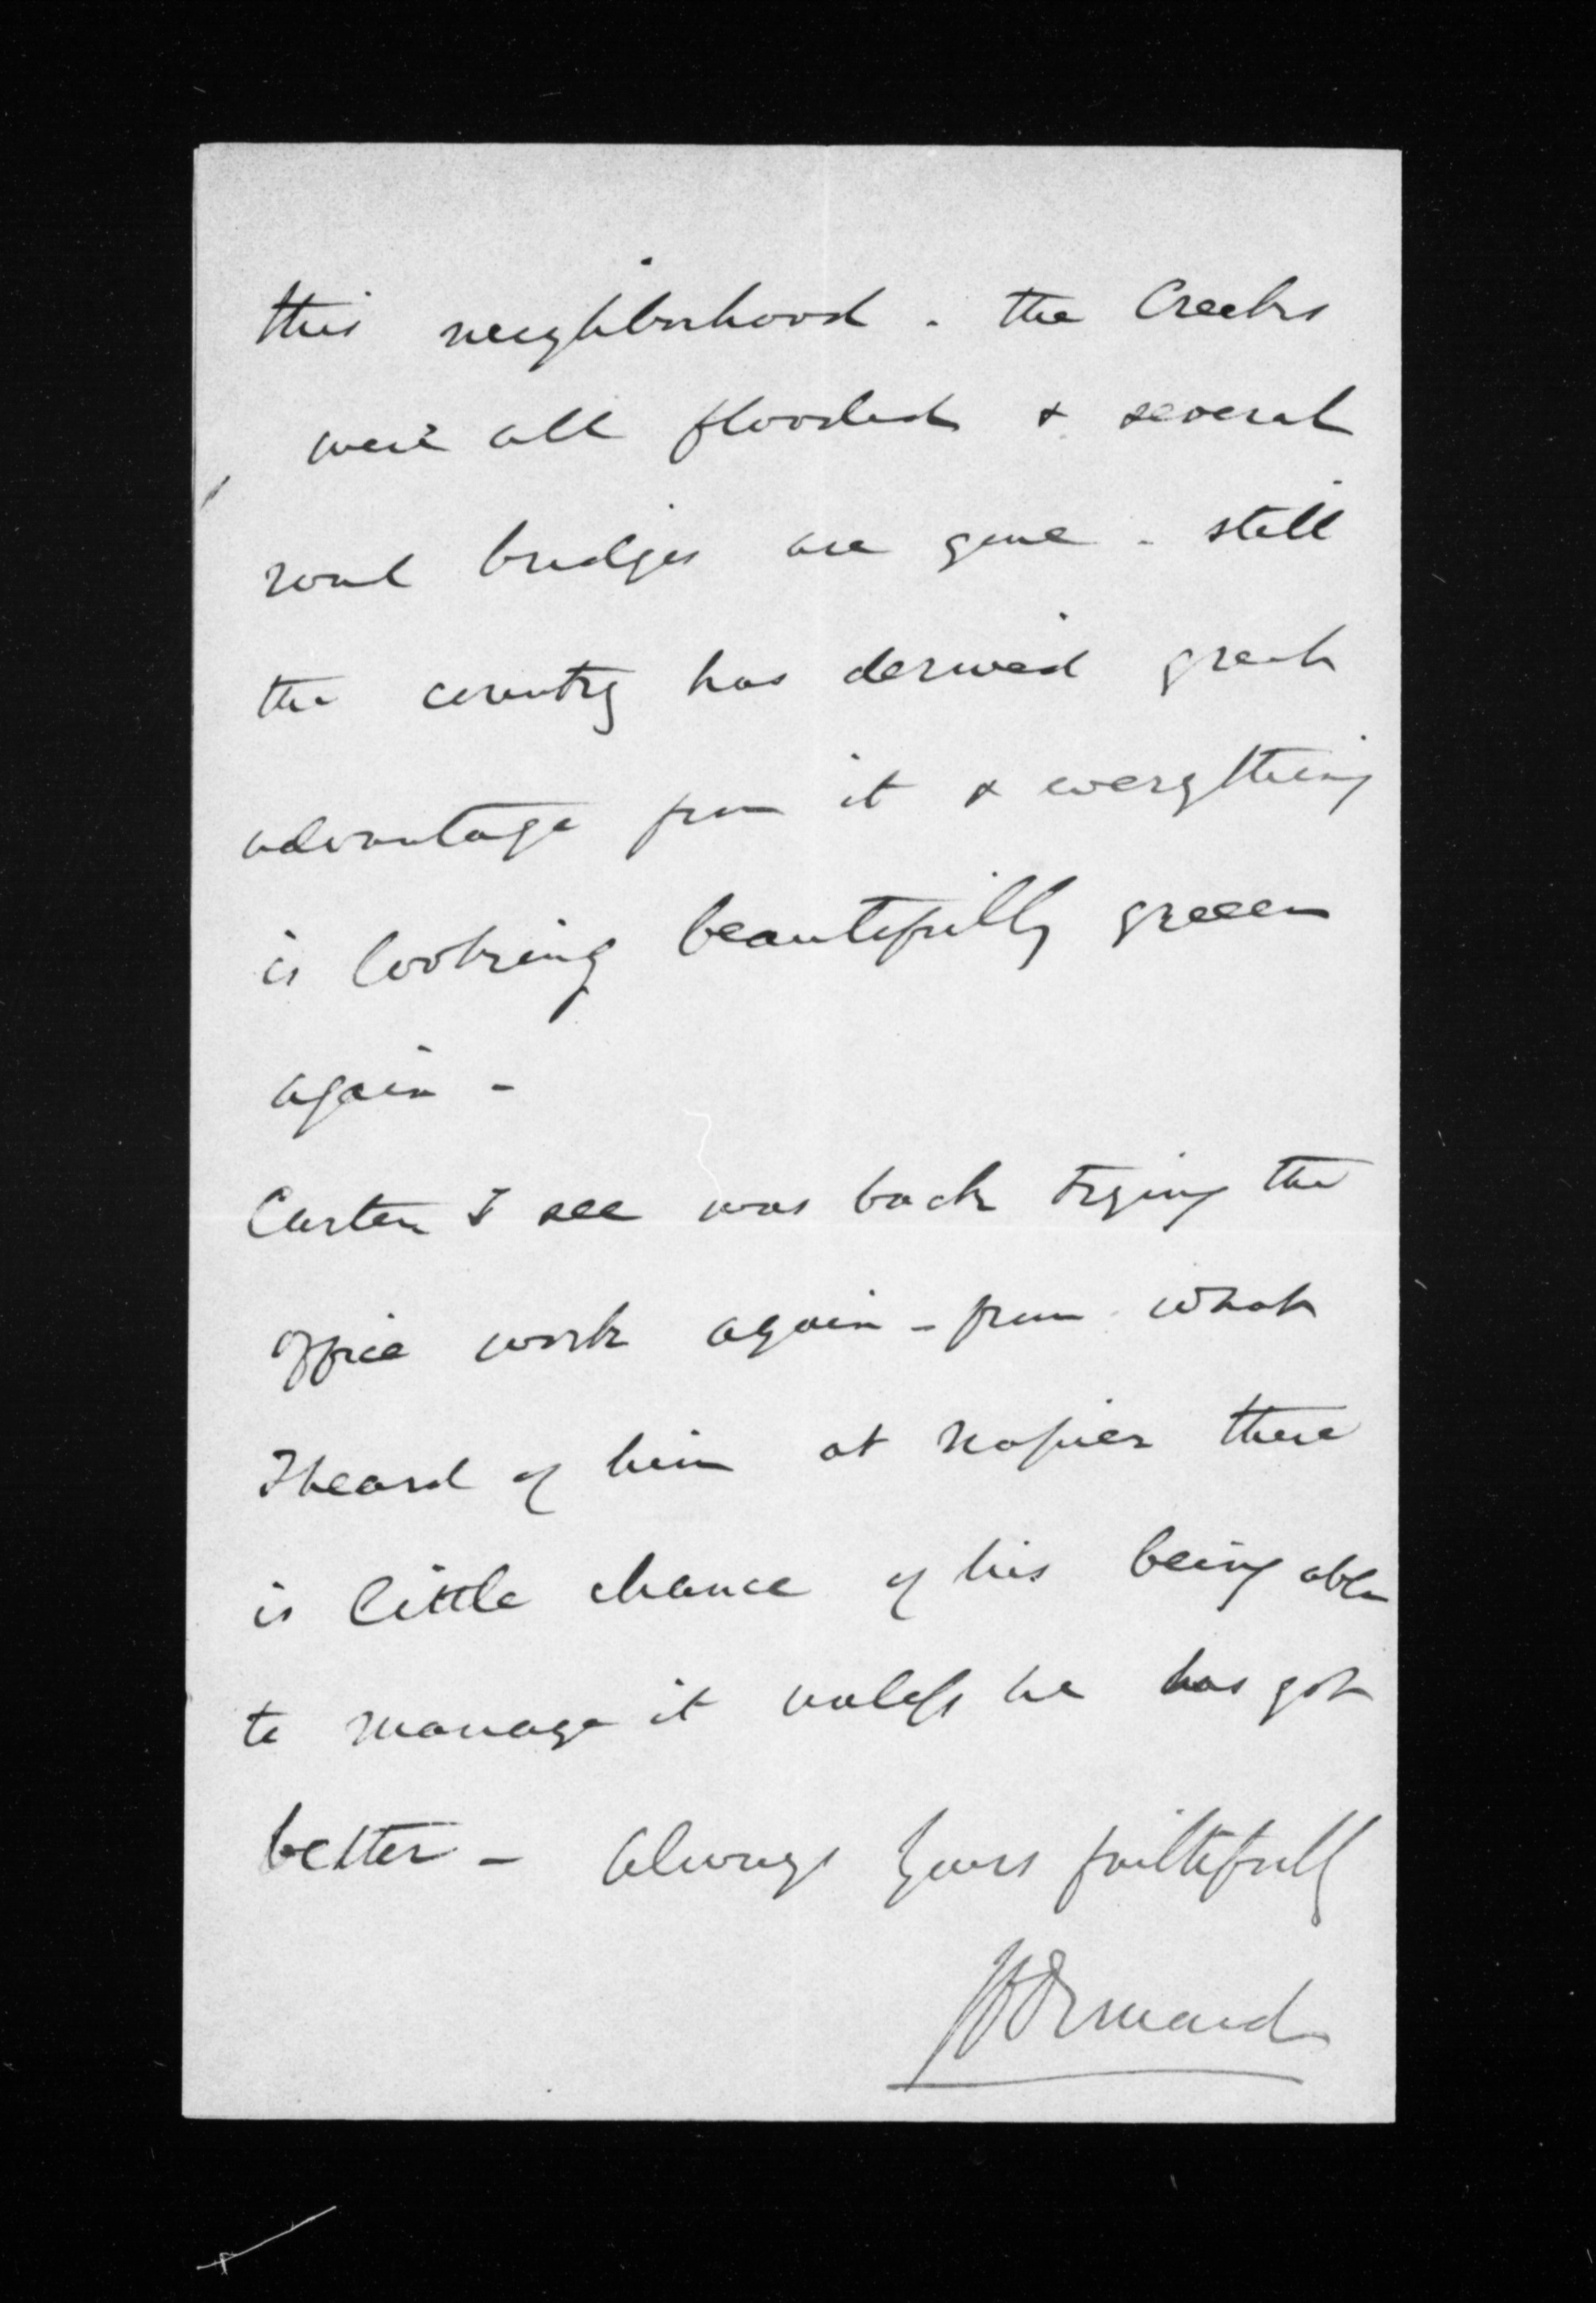 this neighborhood. the Creeks
were all flooded & several
road bridges are gone - still
the country has derived great
advantage from it & everything
is looking beautifully green
again -
Carter I see was back trying the
office work again - from what
I heard of him at Napier there
is little chance of his being able
to manage it unless he has got
better - Always yours faithfully
JD Ormond